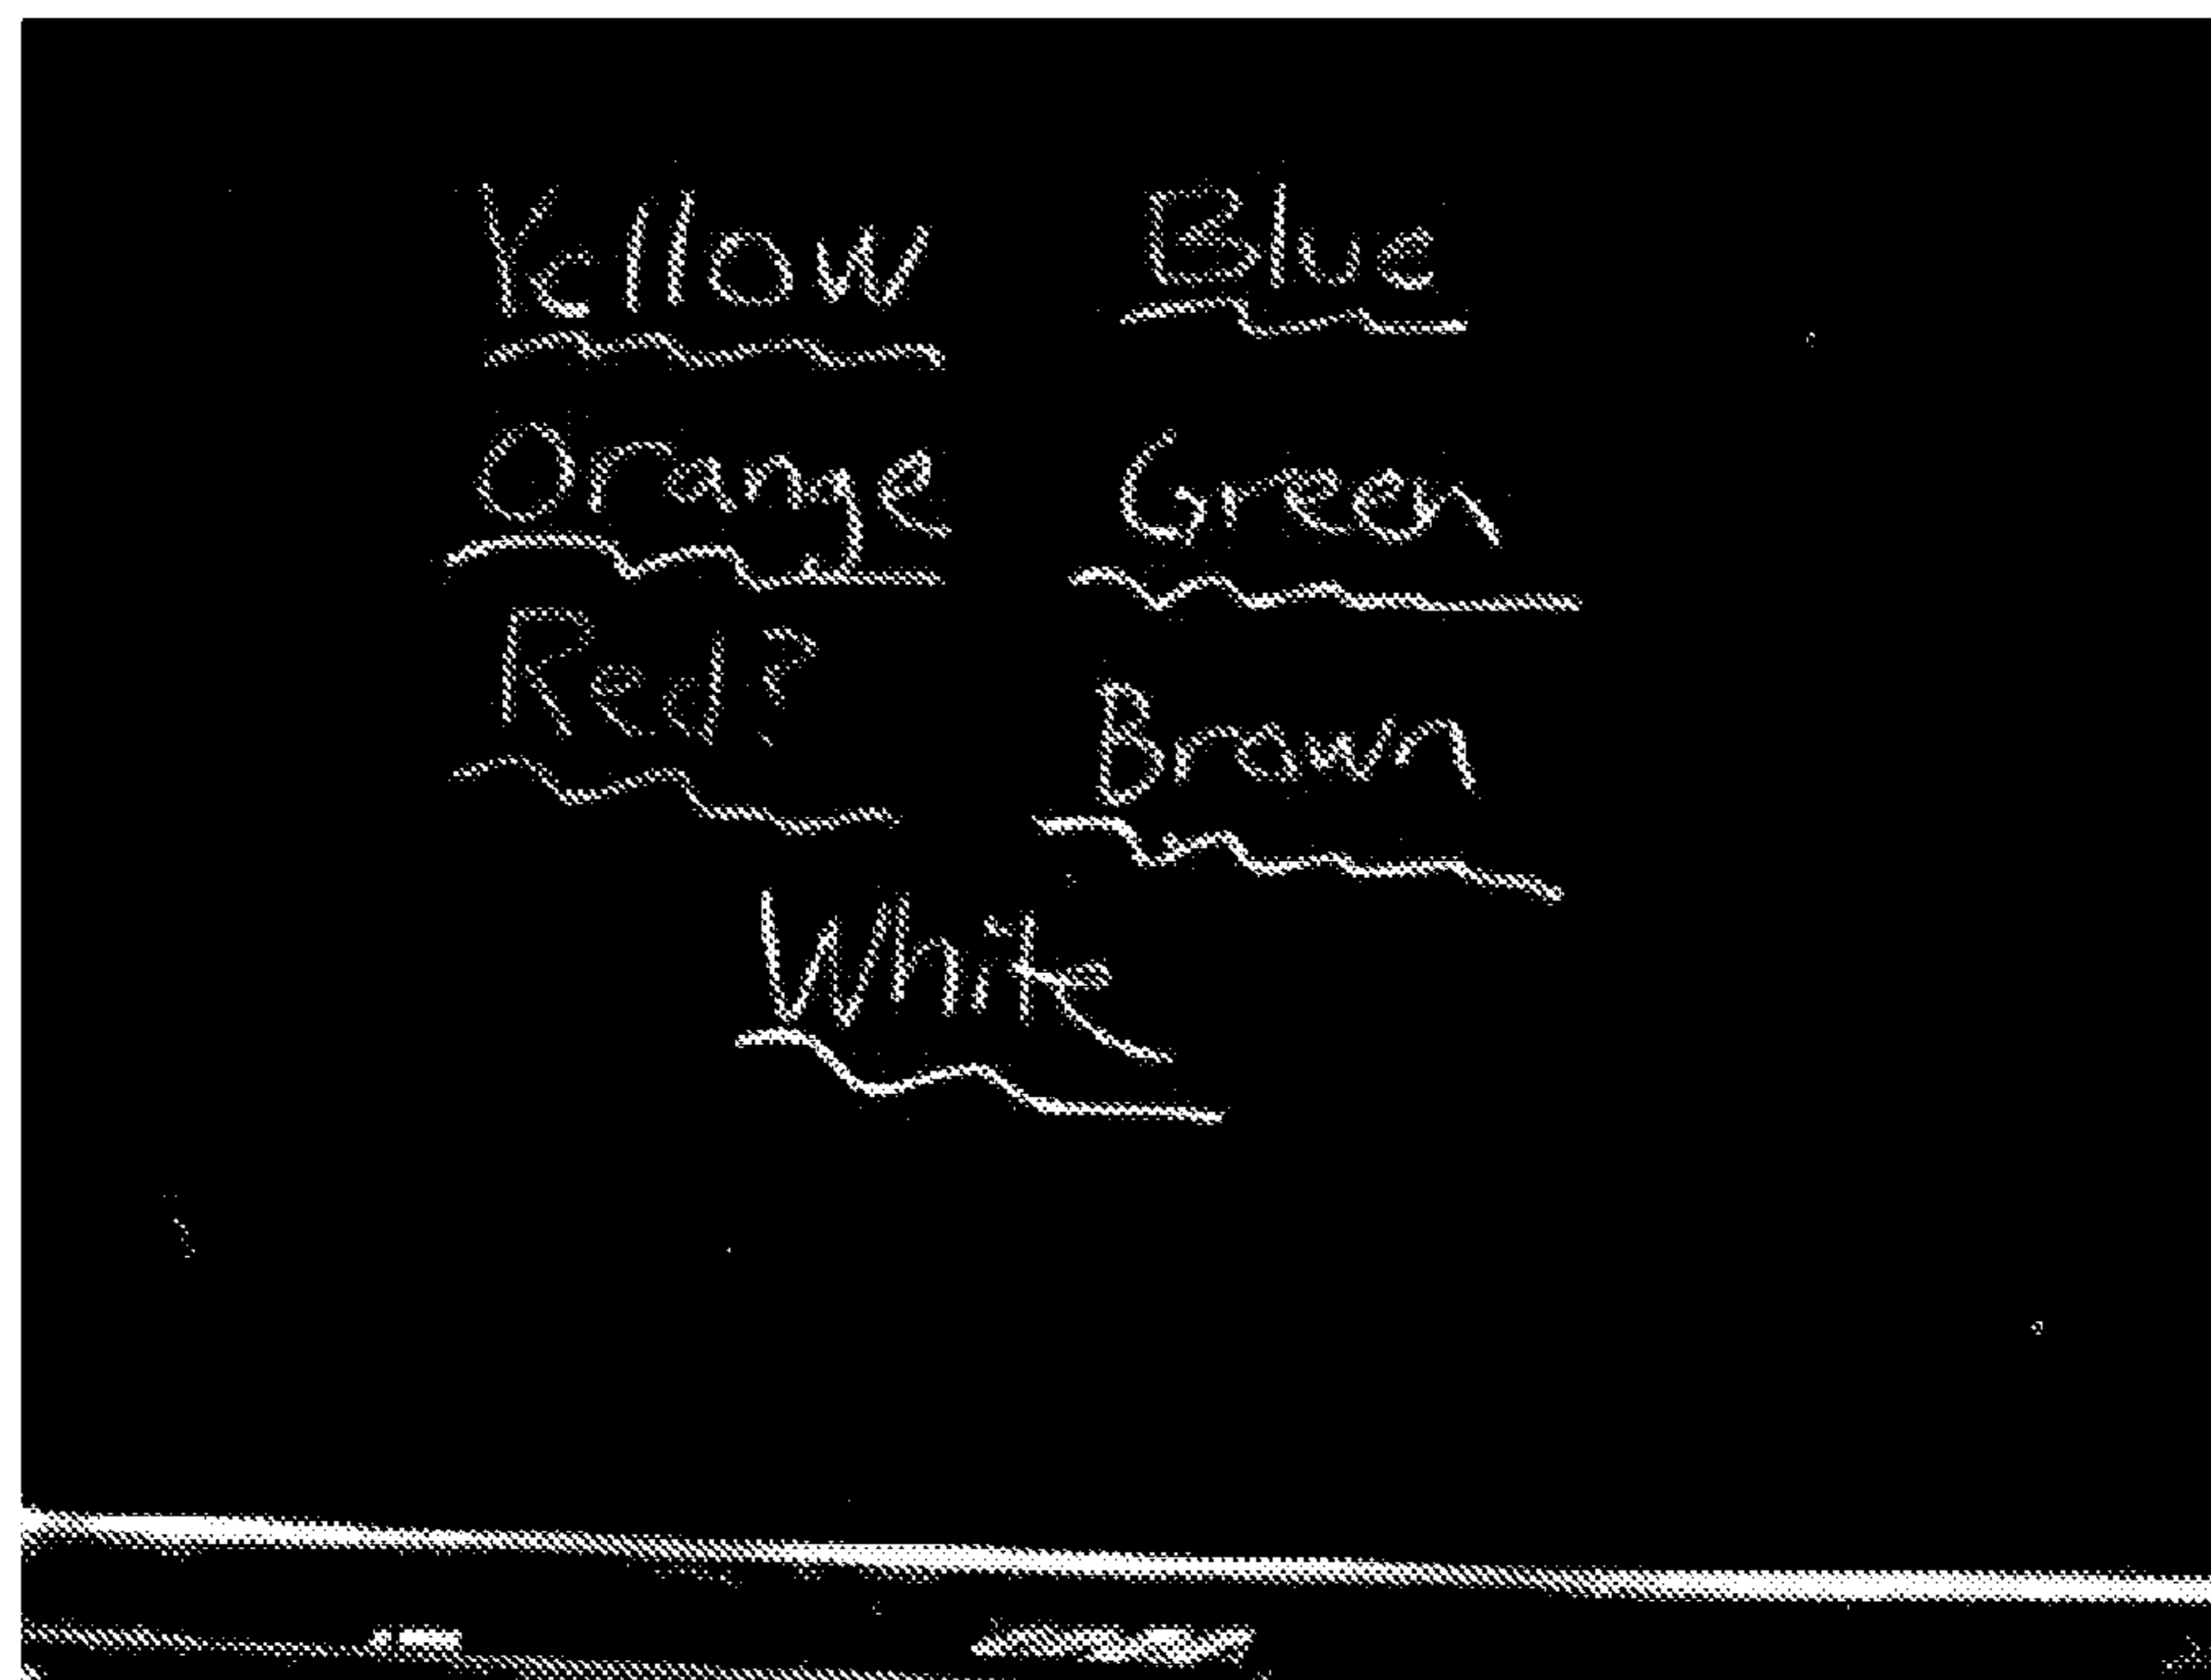 Yellow Blue
Orange Green
Red? Brown
White